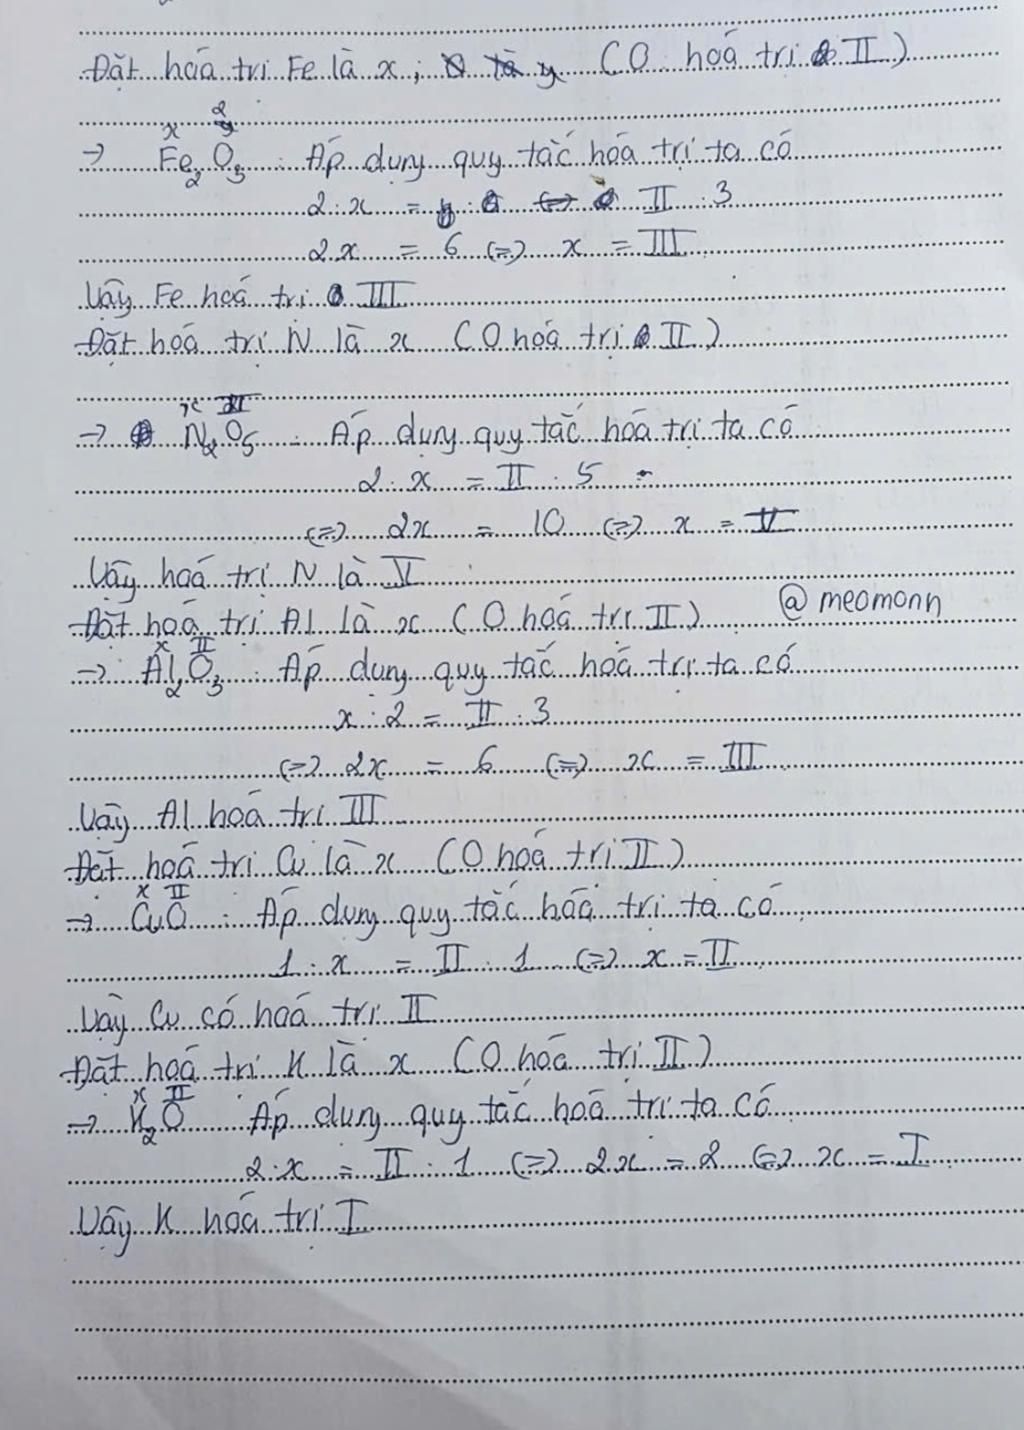 Đặt hoá trị Fe là x; (O hoá trị II)
x
→ Fe₂O₃ : Áp dụng quy tắc hoá trị ta có
2 . x = II . 3
2x = 6 (=) x = III
Vậy Fe hoá trị III
Đặt hoá trị N là x (O hoá trị II)
x II
→ N₂O₅ : Áp dụng quy tắc hoá trị ta có
2 . x = II . 5
(=) 2x = 10 (=) x = V
Vậy hoá trị N là V
@meomonn
Đặt hoá trị Al là x (O hoá trị II)
x II
→ Al₂O₃ : Áp dụng quy tắc hoá trị ta có
x . 2 = II . 3
(=) 2x = 6 (=) x = III
Vậy Al hoá trị III
Đặt hoá trị Cu là x (O hoá trị II)
x II
→ CuO : Áp dụng quy tắc hoá trị ta có
1 . x = II . 1 (=) x = II
Vậy Cu có hoá trị II
Đặt hoá trị K là x (O hoá trị II)
x II
→ K₂O Áp dụng quy tắc hoá trị ta có
2 . x = II . 1 (=) 2x = 2 (=) x = I
Vậy K hoá trị I